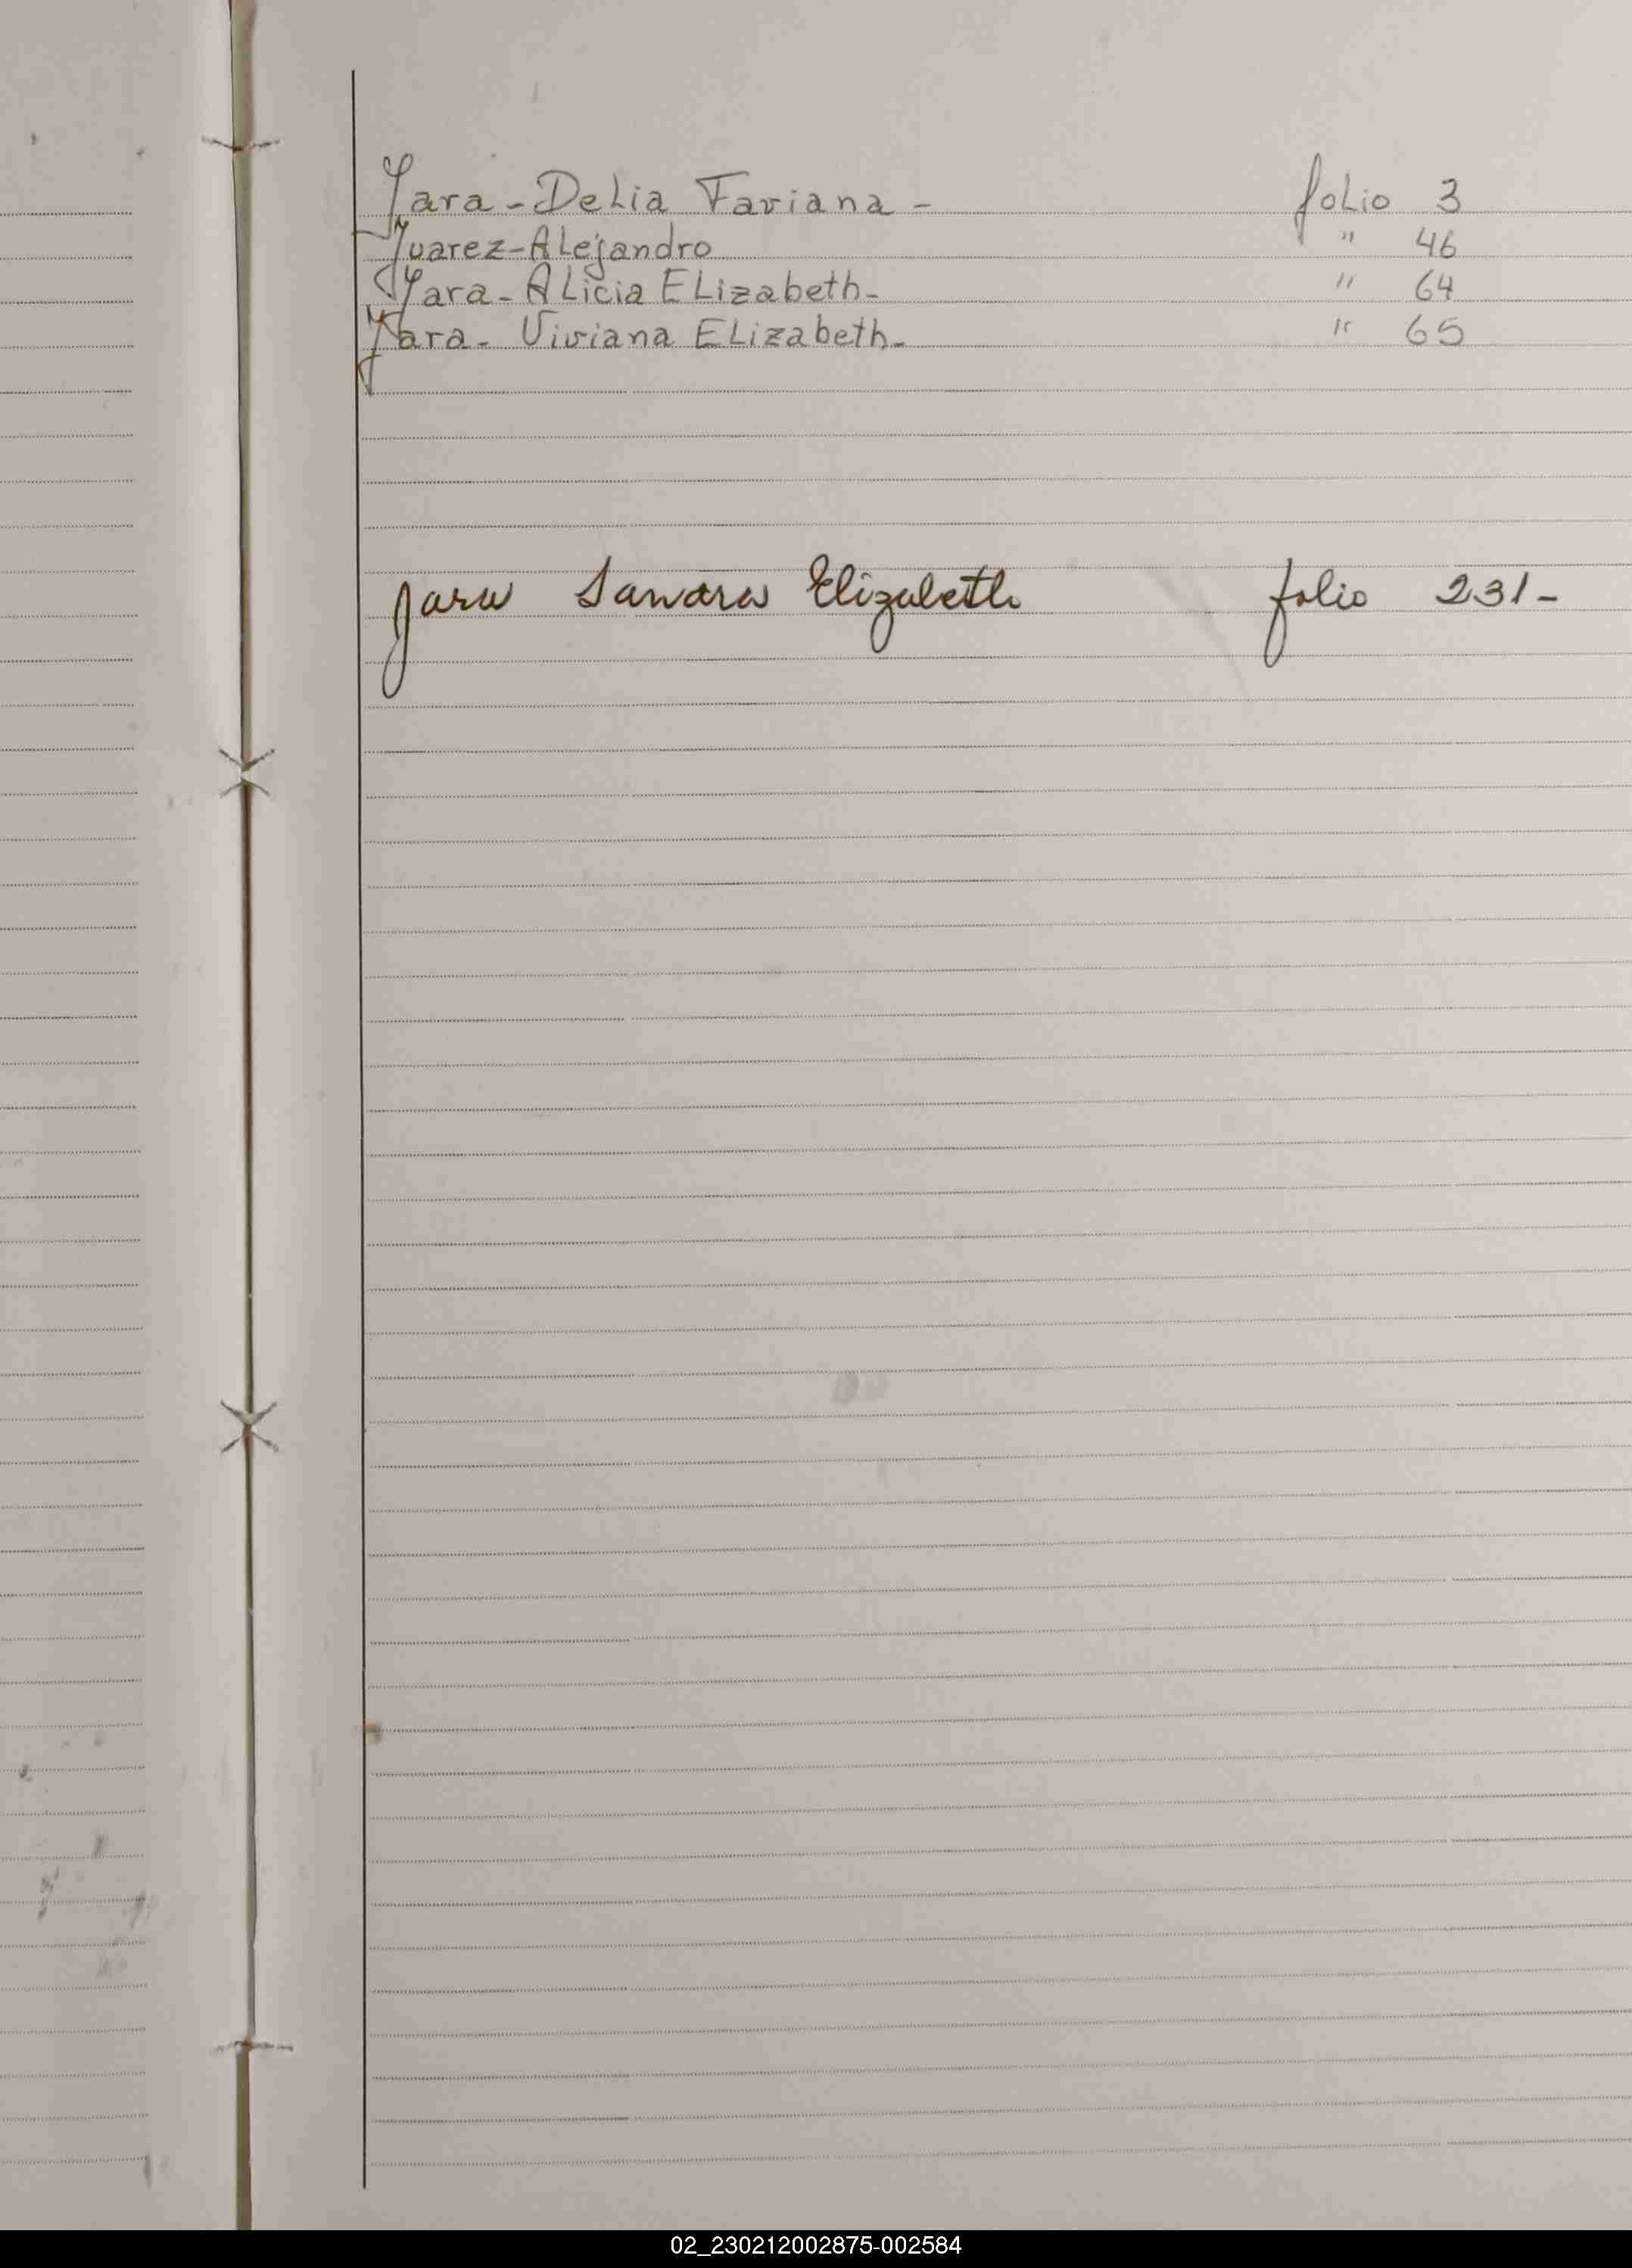 Jara - Delia Faviana - folio 3
Juarez - Alejandro " 46
Jara - Alicia Elizabeth - " 64
Jara - Viviana Elizabeth - " 65
Jara Sandra Elizabeth folio 231 -
02_230212002875-002584